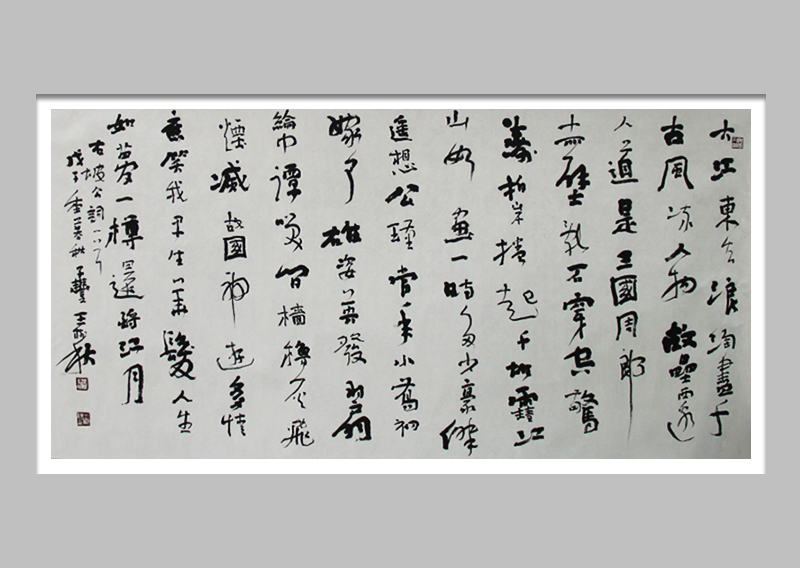 大江東去浪淘盡千
古風流人物故壘西邊
人道是三國周郎
赤壁亂石穿空驚
濤拍岸捲起千堆雪江
山如畫一時多少豪傑
遙想公瑾當年小喬初
嫁了雄姿英發羽扇
綸巾談笑間檣櫓灰飛
煙滅故國神遊多情
應笑我早生華髮人生
如夢一樽還酹江月
右坡公詞一首
戊子 秋